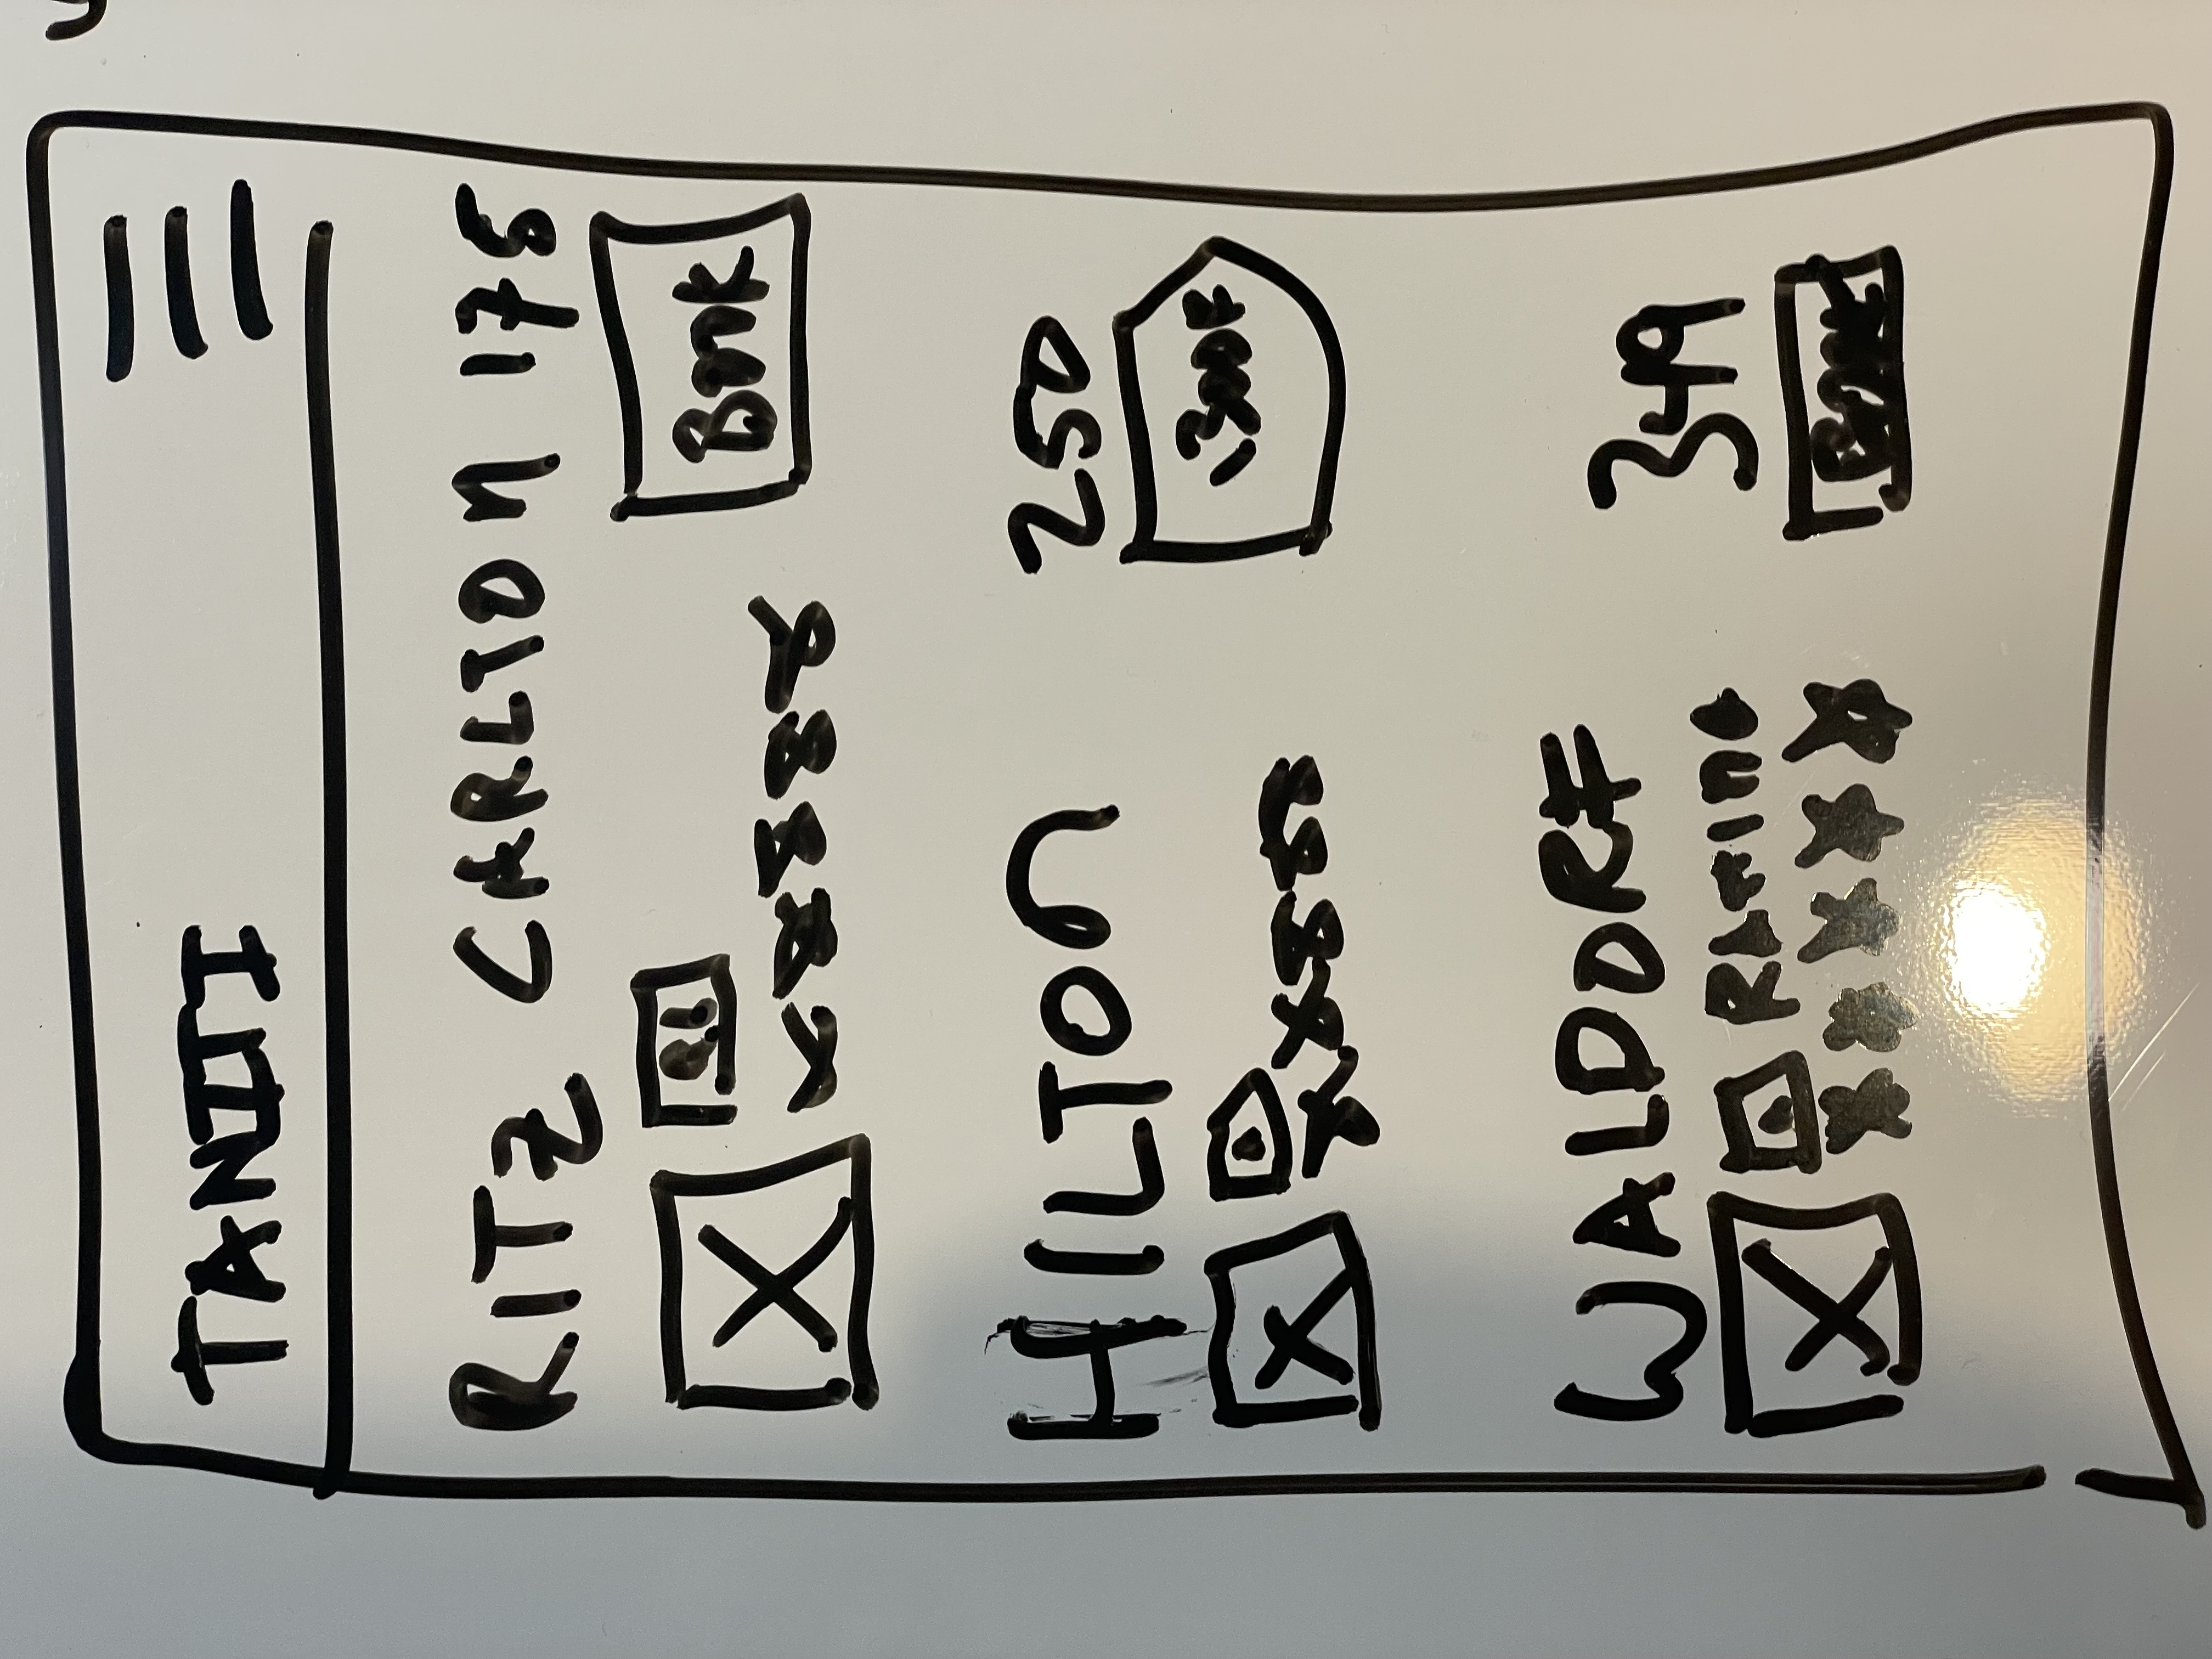 TANITI
RITZ CARLTON 175
BOOK
HILTON 250
BOOK
WALDORF 349
RATING
BOOK